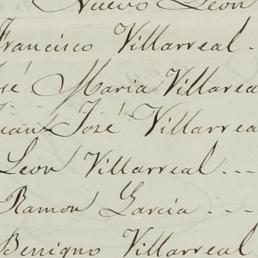 Nuevo Leon
Francisco Villarreal -
José Maria Villarea
Juan José Villarrea
Leon Villarreal - - -
Ramon Garcia - - -
Benigno Villarreal